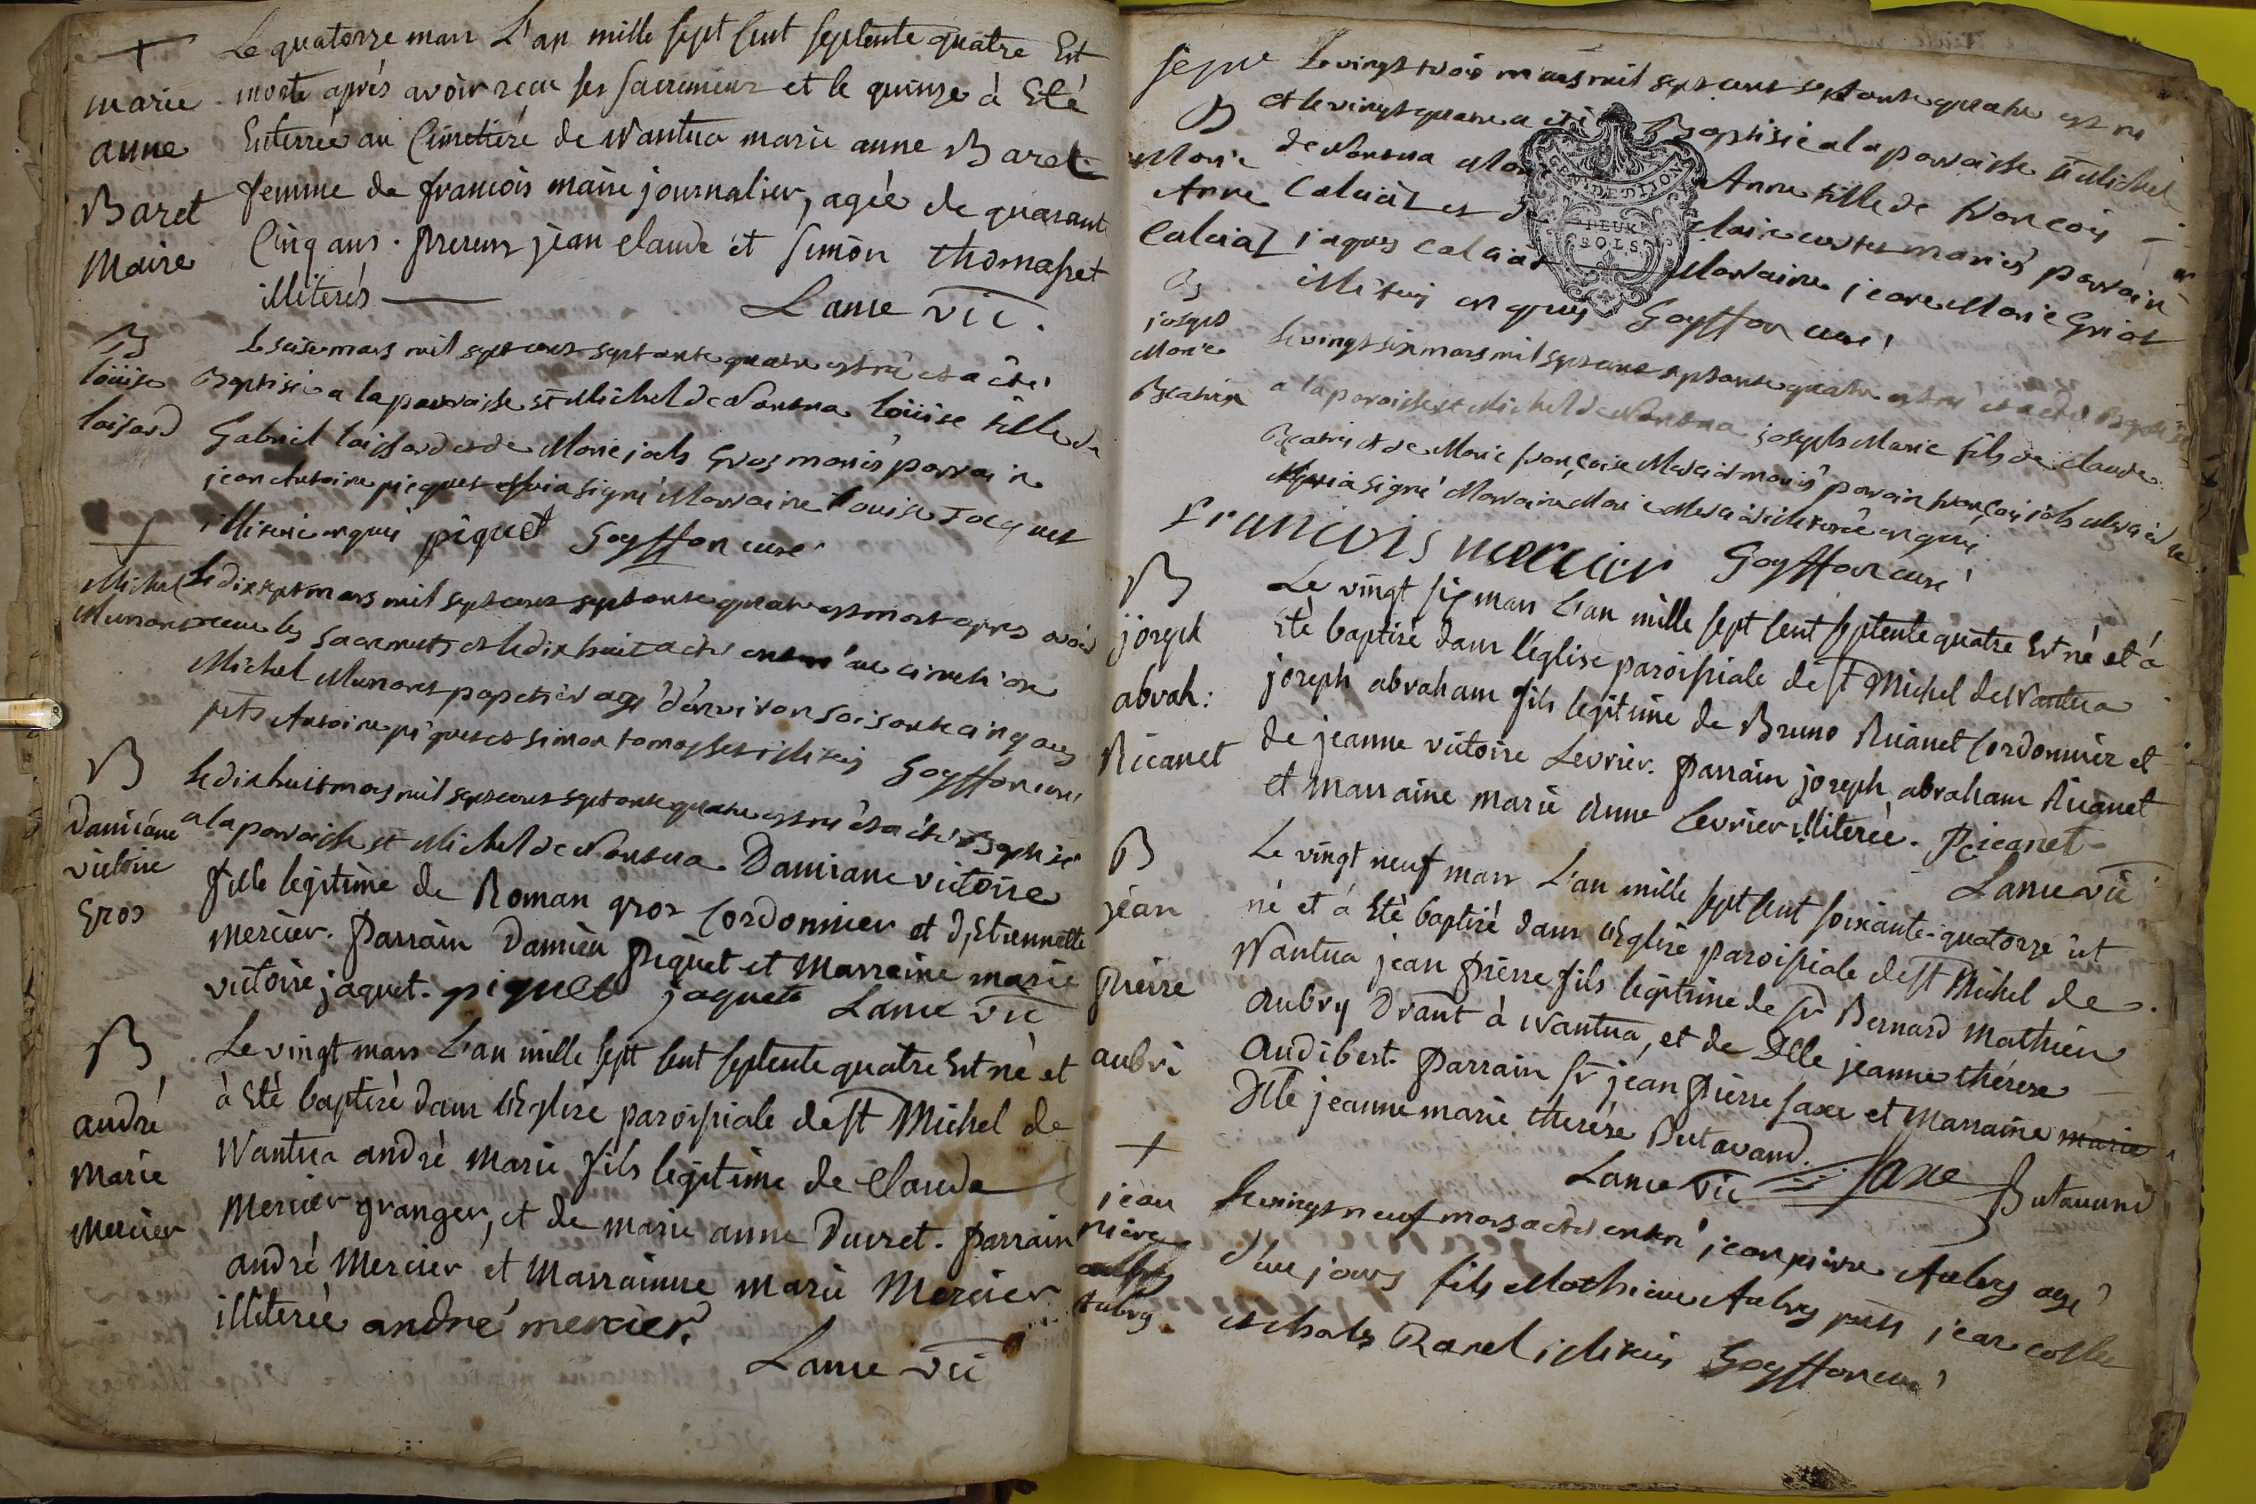 +
marie
anne
Baret
Maire
Le quatorze mars L'an mille sept Cent septente quatre Est
morte après avoir reçu ses sacremens et le quinze à Eté
Enterrée au Cimetiére de Nantua marie anne Baret
femme de françois maire journalier, agée de quarante
Cinq ans. presens jean claude et simon thomasset
illiterés
Lanie vic.
B
loüise
loisard
Le seise mars mil sept cent septante quatre est né et a été
Baptisée a la parroisse st Michel de Nantua loüise fille de
Gabriel loissard et de Marie jos Gros mariés parrain
jean Antoine piquet qui a signé Marraine louise Jacquet
illiteré enquis piquet Goyffon curé
+
Michel
Munaret
Le dix sept mars mil sept cent septante quatre est mort apres avoir
receu les sacremets et le dix huit a eté enterré au cimetiére
Michel Munaret papetier agé d'environ soisante cinq ans
pnts Antoine piquet et simon tomasset illiterés Goyffon curé
B
Damiáne
victoire
Gros
Le dix huit mars mil sept cent septante quatre est née et a été Baptisée
a la parroisse st Michel de Nantua Damiane victoire
fille legitime de Roman gros Cordonnier et d'Etiennette
mercier. parrain Damien piquet et Marreine marie
victoire jaquet. piquet jaquete Lanie vic
B
andré
Marie
Mercier
Le vingt mars L'an mille sept Cent septente quatre Est né et
à Eté baptisé dans l'Eglise paroissiale de st Michel de
Nantua andré Marie fils legitime de Claude
Mercier granger, et de marie anne Ducret. parrain
andré Mercier et Marrainne marie Mercier
illiterée andré mercier
Lanie vic
B
Marie
Anne
Calciat
Le vingt trois mars mil sept cent septante quatre est né
et le vingt quatre a été Baptisée a la parroisse st Michel
de Nantua Anne fille de françois
Calciat et mariés parrain
jaques Calciat Marraine jeane Marie Griot
illiterés enquis Goyffon curé
GEN DE DIJON
DEUX
SOLS
B
joseph
Marie
Beatrix
Le vingt six mars mil sept cent septante quatre est né et a été Baptisé
a la paroisse st Michel de Nantua joseph Marie fils de claude
Beatrix et de Marie françoise Mercier mariés parrain françois jos
qui a signé Marraine Marie illiterée enquis
francois mercier Goyffon curé
B
joseph
abrah:
Ricanet
Le vingt six mars L'an mille sept Cent septente quatre Est né et à
Eté baptisé dans l'église paroissiale de st Michel de Nantua
joseph abraham fils legitime de Bruno Ricanet Cordonnier et
de jeanne victoire Levrier. parrain joseph abraham Ricanet
et marraine marie anne Levrier illiterée. Ricanet
Lanie vic
B
jean
Pierre
aubri
Le vingt neuf mars L'an mille sept Cent soixante-quatorze est
né et à Eté baptisé dans l'Eglise paroissiale de st Michel de
Nantua jean pierre fils legitime de sr Bernard Mathieu
Aubry à Nantua, et de Dlle jeanne thérese
Audibert. Parrain sr jean pierre saxe et Marraine marie
Dlle jeanne marie therése Butavand.
Lanie vic Saxe Butavand
+
jean
Piere
Aubry
Le vingt neuf mars a eté enterré jean pierre Aubry agé
d'un jours fils Mathieu Aubry pnts jean
et illiterés Goyffon curé